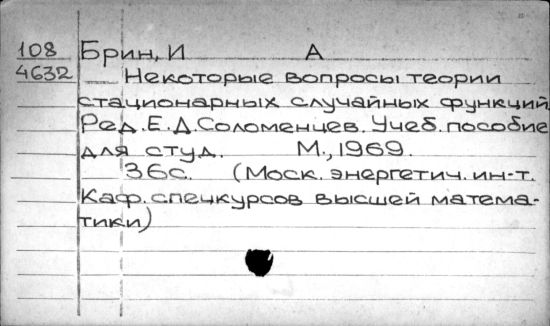 108 Брин, И А
4632 Некоторые вопросы теории
стационарных случайных функций
Ред. Е.Д. Соломенцев. Учеб. пособие
для студ. М., 1969.
36с. (Моск. энергетич. ин-т.
Каф. спецкурсов высшей матема-
тики)